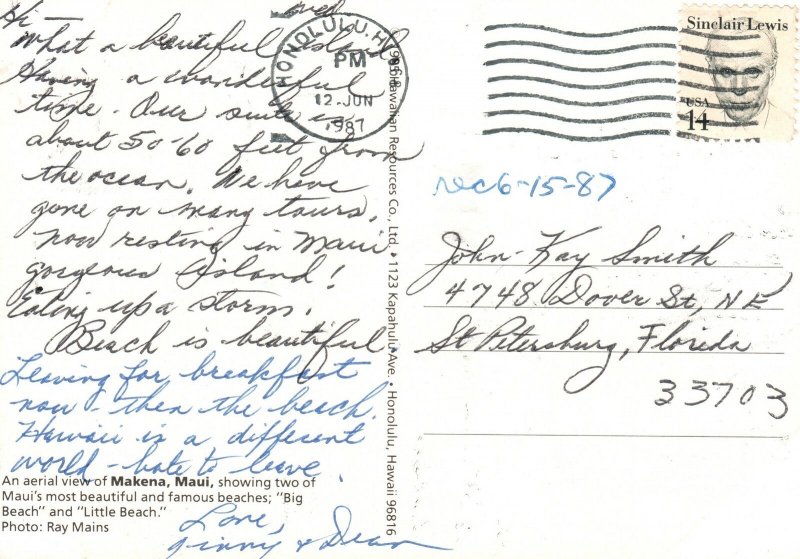 Hi —
What a beautiful island
Having a wonderful
time - Our suite is
about 50-60 feet from
the ocean. We have
gone on many tours,
now resting in Maui
gorgeous Island!
Eating up a storm.
Beach is beautiful
Leaving for breakfast
now - then the beach.
Hawaii is a different
world - hate to leave.
Love,
Ginny & Dean
An aerial view of Makena, Maui, showing two of
Maui's most beautiful and famous beaches; "Big
Beach" and "Little Beach."
Photo: Ray Mains
HONOLULU, HI 968
PM
12 JUN
1987
Hawaiian Resources Co., Ltd. • 1123 Kapahulu Ave. • Honolulu, Hawaii 96816
Sinclair Lewis
USA
14
rec 6-15-87
John - Kay Smith
4748 Dover St, NE
St Petersburg, Florida
33703